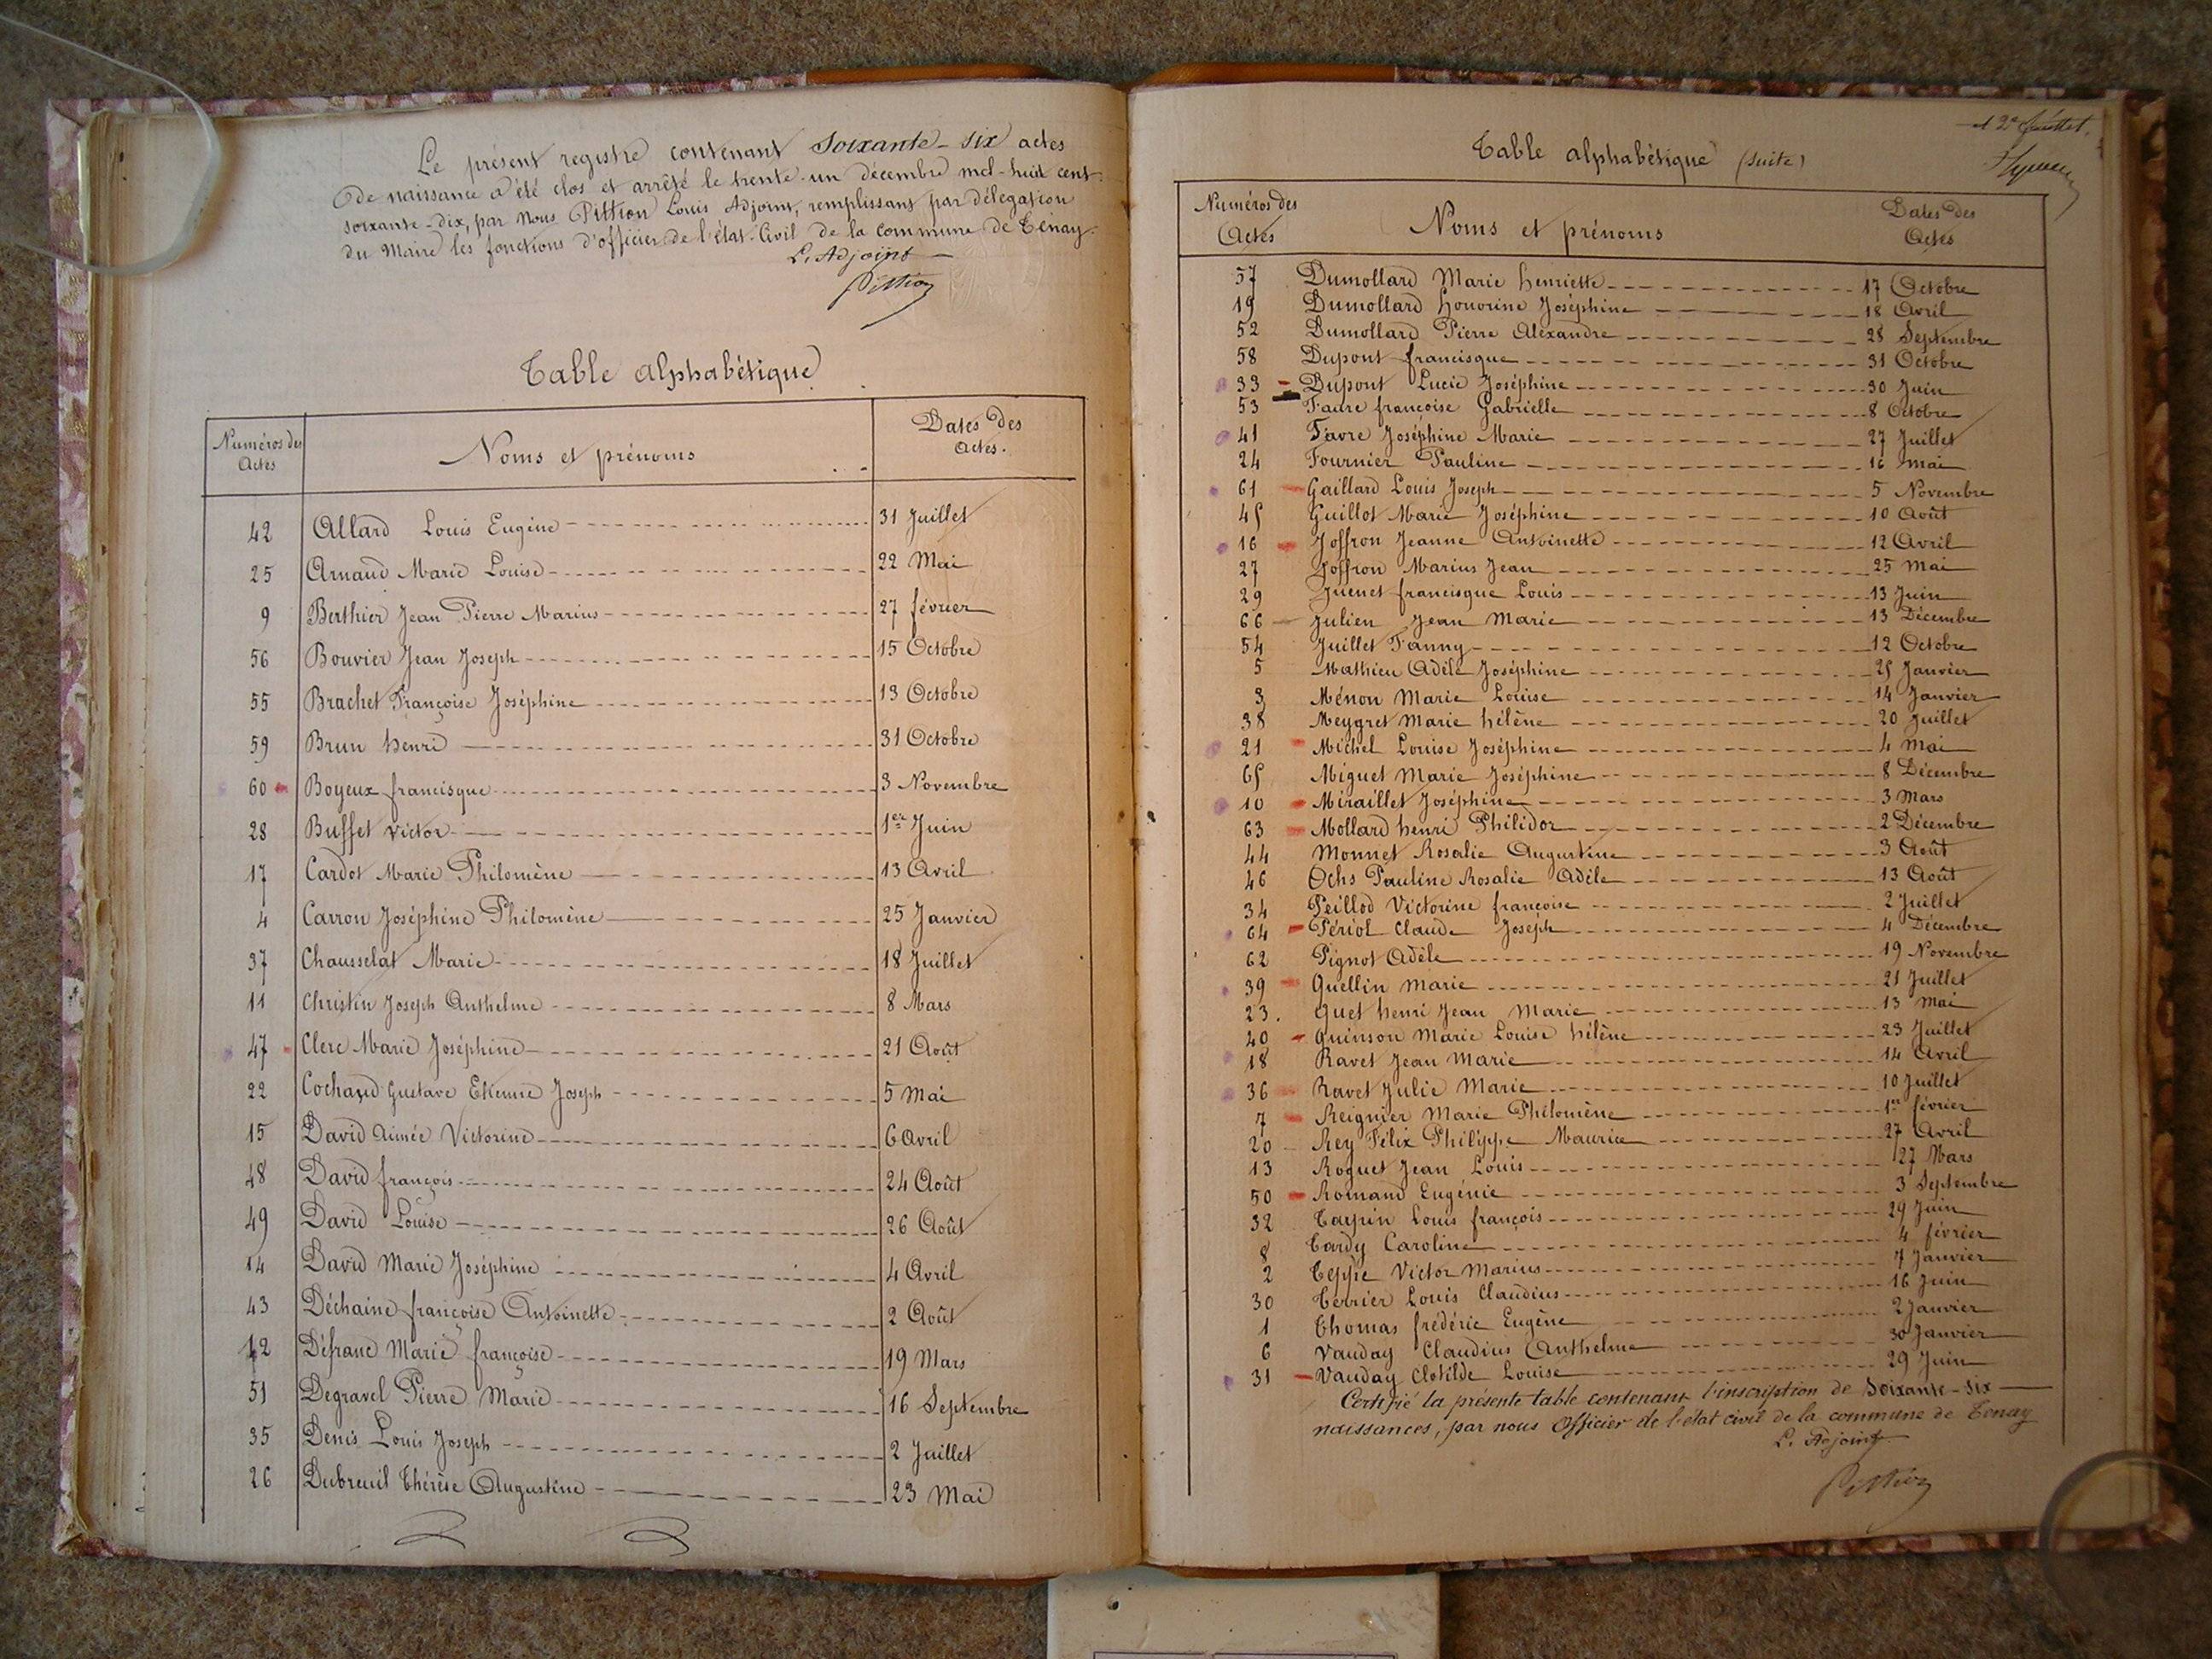 Le présent registre contenant Soixante-six actes
de naissance a été clos et arrêté le trente-un décembre mil-huit cent-
soixante-dix, par nous Pittion Louis Adjoint, remplissant par délégation
du Maire les fonctions d'officier de l'état-Civil de la commune de Tenay.
L'Adjoint
Pittion
Table alphabétique
Numéros des Actes Noms et prénoms Dates des actes.
42 Allard Louis Eugène 31 Juillet
25 Arnaud Marie Louise 22 Mai
9 Berthier Jean Pierre Marius 27 février
56 Bouvier Jean Joseph 15 Octobre
55 Brachet Françoise Joséphine 13 Octobre
59 Brun henri 31 Octobre
60 Boyeux francisque 3 Novembre
28 Buffet victor 1er Juin
17 Cardot Marie Philomène 13 Avril
4 Carron Joséphine Philomène 25 Janvier
37 Chausselat Marie 18 Juillet
11 Christin Joseph Anthelme 8 Mars
47 Clerc Marie Joséphine 21 Août
22 Cochand Gustave Etienne Joseph 5 Mai
15 David Aimée Victorine 6 Avril
48 David françois 24 Août
49 David Louise 26 Août
14 David Marie Joséphine 4 Avril
43 Déchaine françoise Antoinette 2 Août
12 Défranc Marie françoise 19 Mars
51 Degravel Pierre Marie 16 Septembre
35 Denis Louis Joseph 2 Juillet
26 Dubreuil Thérèse Augustine 23 Mai
Table alphabétique (suite)
Numéros des Actes Noms et prénoms Dates des Actes
57 Dumollard Marie henriette 17 Octobre
19 Dumollard honorine Joséphine 18 Avril
52 Dumollard Pierre Alexandre 28 Septembre
58 Dupont francisque 31 Octobre
33 Dupont Lucie Joséphine 30 Juin
53 Faure françoise Gabrielle 8 Octobre
41 Favre Joséphine Marie 27 Juillet
24 Fournier Pauline 16 mai
61 Gaillard Louis Joseph 5 Novembre
45 Guillot Marie Joséphine 10 Août
16 Joffron Jeanne Antoinette 12 Avril
27 Joffron Marius Jean 25 Mai
29 Juenet francisque Louis 13 Juin
66 Julien Jean Marie 13 Décembre
54 Juillet Fanny 12 Octobre
5 Mathieu Adèle Joséphine 25 Janvier
3 Ménon Marie Louise 14 Janvier
38 Meygret Marie hélène 20 Juillet
21 Michel Louise Joséphine 4 Mai
65 Miguet Marie Joséphine 8 Décembre
10 Miraillet Joséphine 3 Mars
63 Mollard henri Philidor 2 Décembre
44 Monnet Rosalie Augustine 3 Août
46 Ochs Pauline Rosalie Adèle 13 Août
34 Peillod Victorine françoise 2 Juillet
64 Périol Claude Joseph 4 Décembre
62 Pignot Adèle 19 Novembre
39 Quellin Marie 21 Juillet
23. Quet henri Jean Marie 13 Mai
40 Quinson Marie Louise hélène 23 Juillet
18 Ravet Jean Marie 14 Avril
36 Ravet Julie Marie 10 Juillet
7 Reignier Marie Philomène 1er février
20 Rey Félix Philippe Maurice 27 Avril
13 Roguet Jean Louis 27 Mars
50 Romand Eugénie 3 Septembre
32 Tarpin Louis françois 29 Juin
8 Tardy Caroline 4 février
2 Teppe Victor Marius 7 Janvier
30 Terrier Louis Claudius 16 Juin
1 Thomas frédéric Eugène 2 Janvier
6 Vauday Claudius Anthelme 30 Janvier
31 Vauday Clotilde Louise 29 Juin
Certifié la présente table contenant l'inscription de Soixante-six
naissances, par nous Officier de l'état civil de la commune de Tenay
L'Adjoint
Pittion